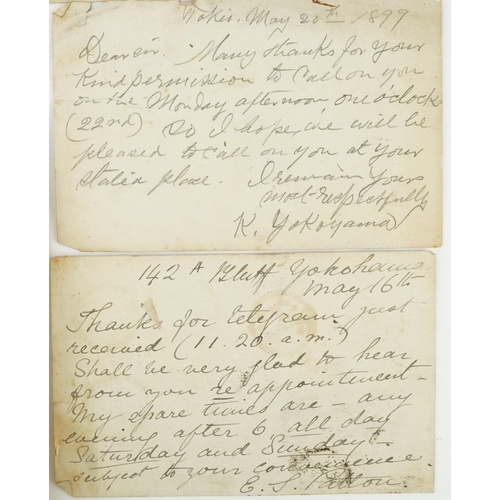 Tokio. May 20th 1899
Dear sir. Many thanks for your
Kind permission to call on you
on the Monday afternoon one o'clock
(22nd) So I hope, we will be
pleased to call on you at your
stated place. I remain yours
most respectfully
K. Yokoyama
142 A Bluff Yokohama
May 16th
Thanks for telegram just
received (11.20. a.m.)
Shall be very glad to hear
from you re appointment -
My spare times are - any
evening after 6 all day
Saturday and Sunday -
subject to your convenience
E. S. Patton.